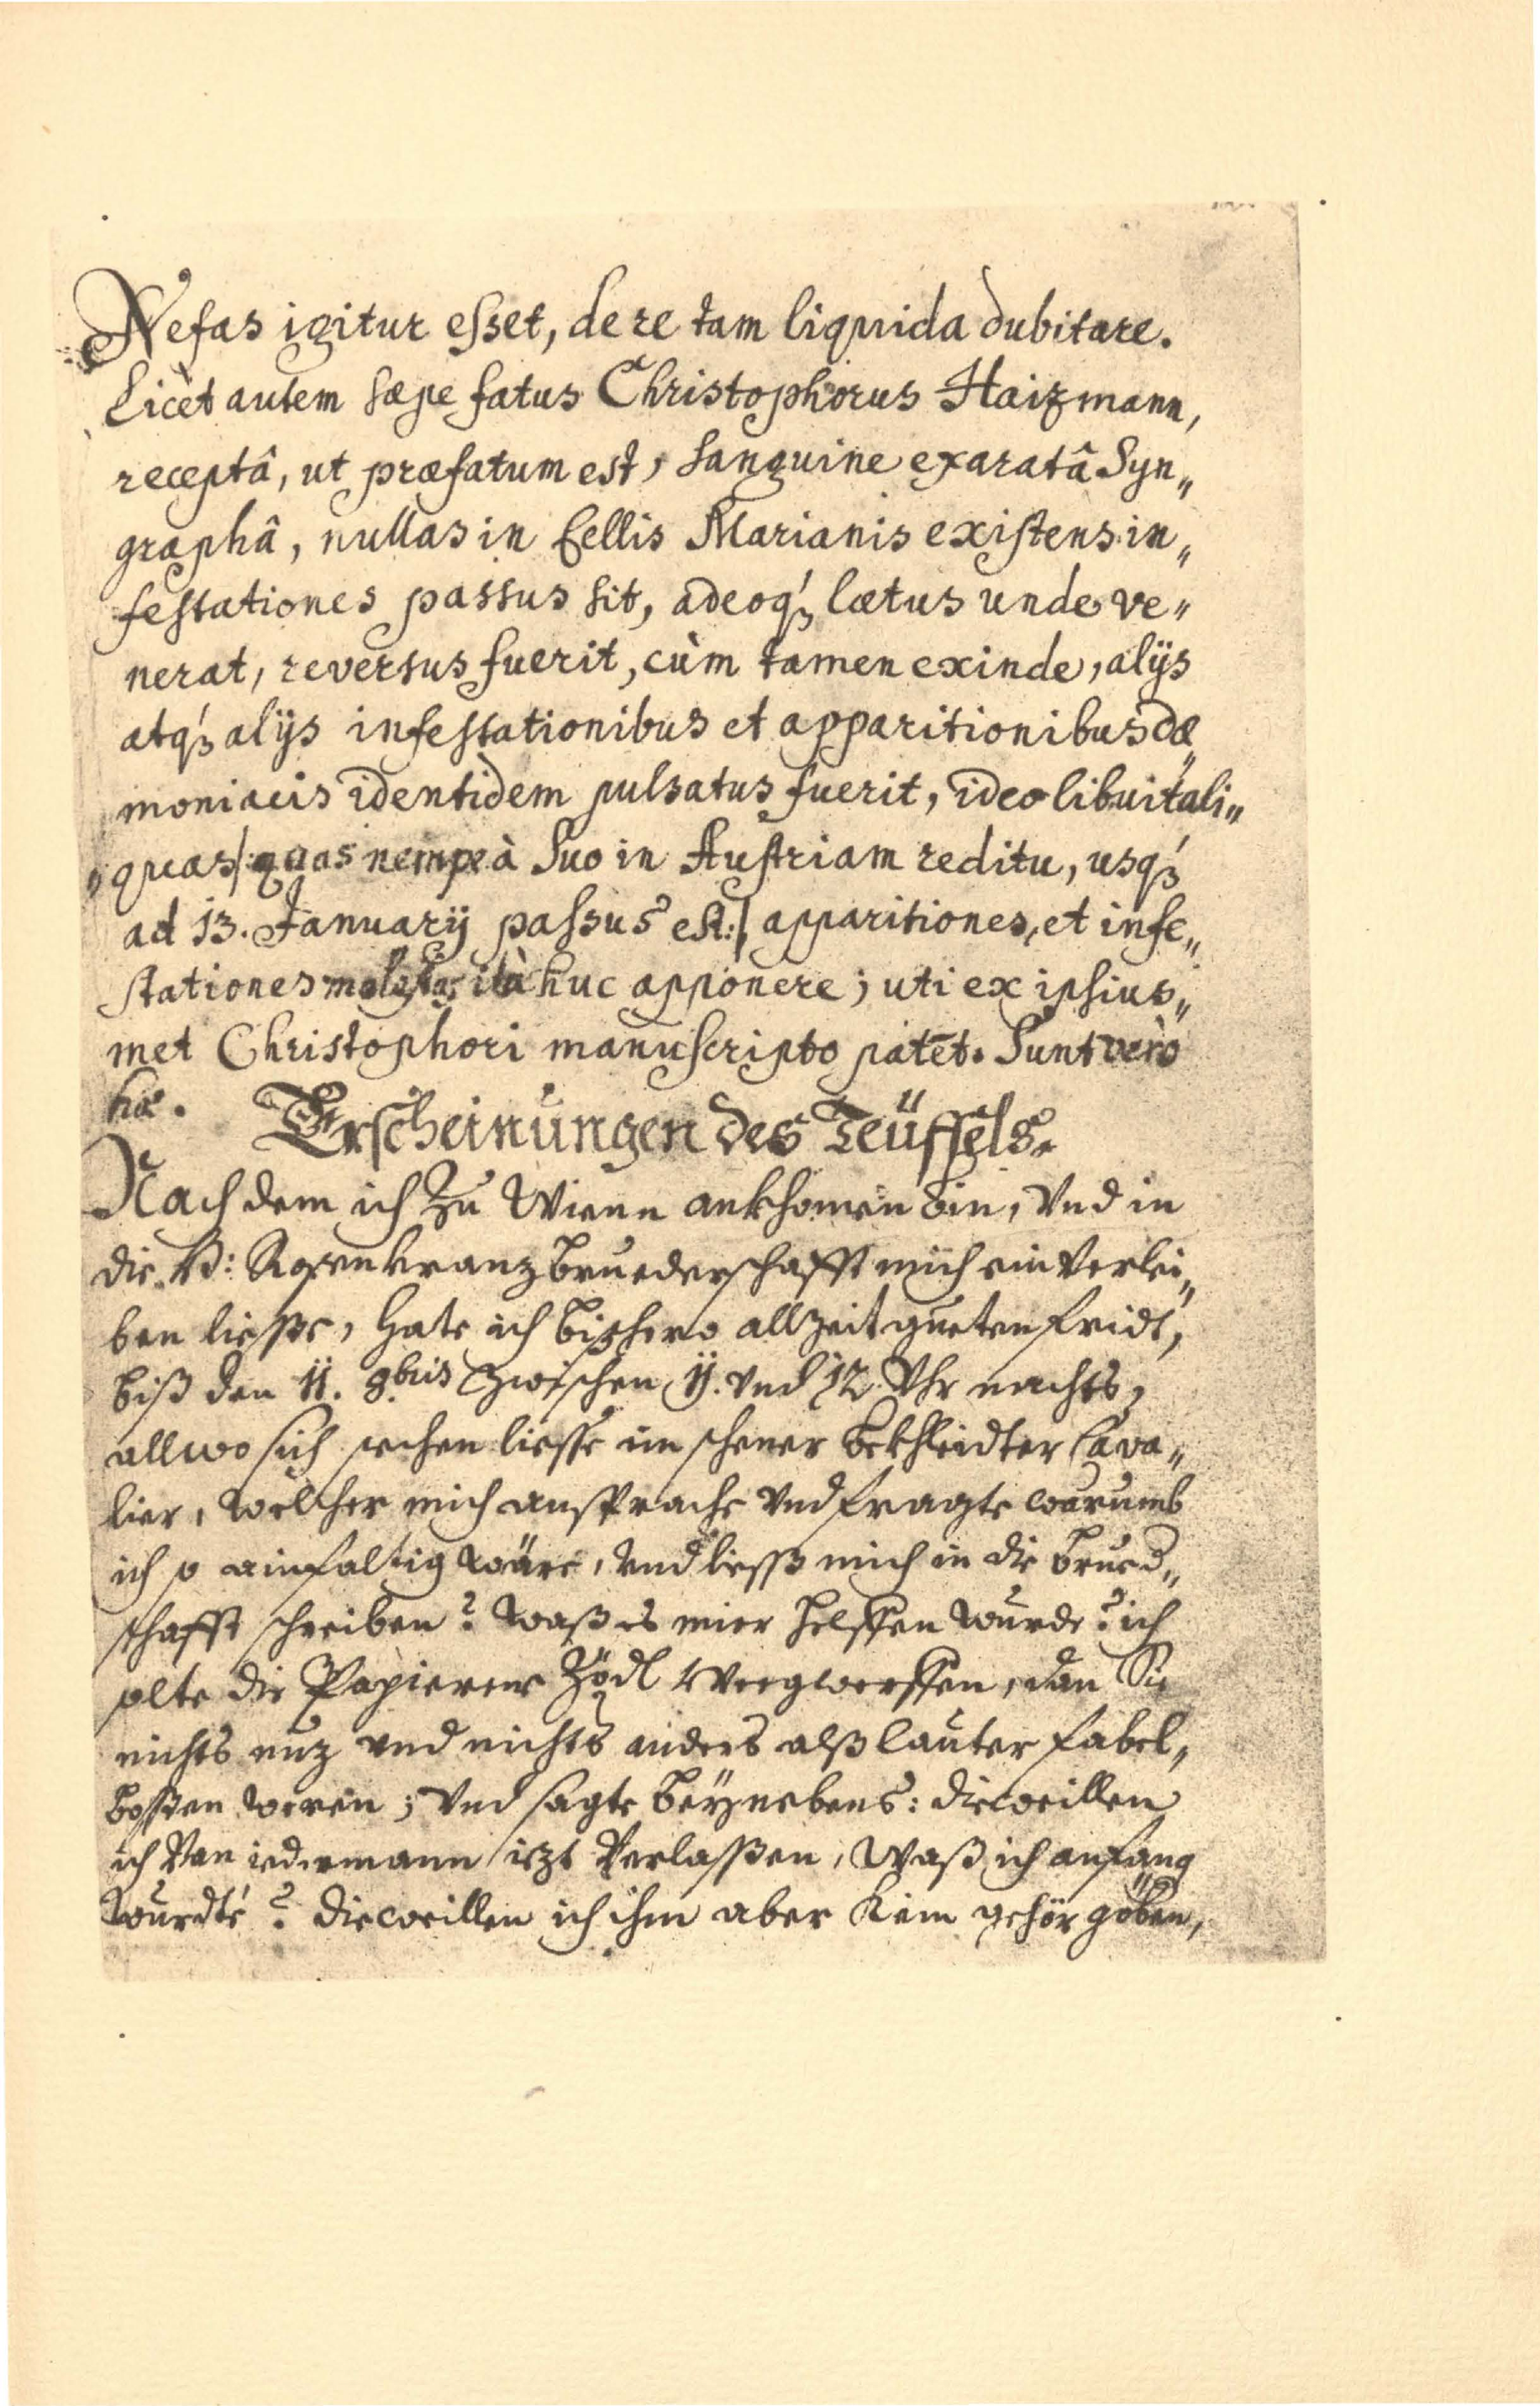 Nefas igitur esset, de re tam liquida dubitare.
Licèt autem sæpe fatus Christophorus Haizmann,
receptâ, ut præfatum est, sanguine exaratâ Syn„
graphâ, nullas in Cellis Marianis existens in„
festationes passus sit, adeoq́ꝫ lætus unde ve„
nerat, reversus fuerit, cùm tamen exinde, alijs
atq́ꝫ alijs infestationibus et apparitionibus dæ„
moniacis identidem pulsatus fuerit, ideo libuit ali„
„quas /: quas nempe à suo in Austriam reditu, usq́ꝫ
ad 13. Januarij passus est :/ apparitiones, et infe„
stationes molestas ità huc apponere; uti ex ipsius„
met Christophori manuscripto patet. Sunt verò
hæ.
Erscheinungen des Teüffels.
Nach dem ich zu Wienn ankhomen bin, Vnd in
die B: Rosenkranz Bruederschafft mich ein Verlei„
ben liesse, Hate ich bißhero allzeit gueten fridt,
biß den 11. 8bris zwischen 11. vnd 12 Vhr nachts,
allwo sich sechen liesse im schener bekhleidter Cava„
lier, welcher mich ansprache Vnd fragte warumb
ich so ainfaltig wäre, Vnd liess mich in die Brued„
schafft schreiben? Waß es mier helffen wurde? ich
solte die Papierene Zödl Weegwerffen, dan Sie
nichts nuz vnd nichts anders alß lauter fabel„
bossen weren; Vnd sagte beÿnebens: dieweillen
ich Van iedermann iezt Verlassen, Waß ich anfang
wurdte? dieweillen ich ihm aber Kein gehör göben,